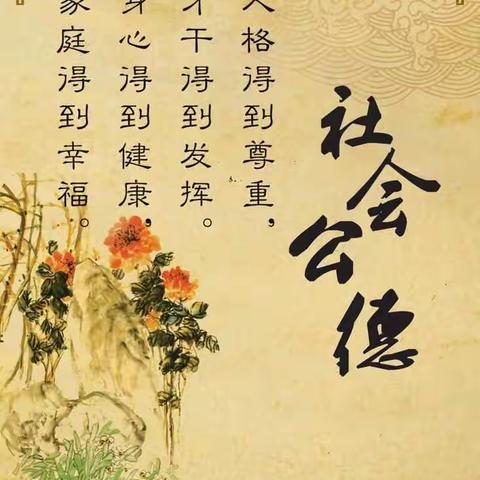 社会公德
人格得到尊重,
才干得到发挥。
身心得到健康,
家庭得到幸福。